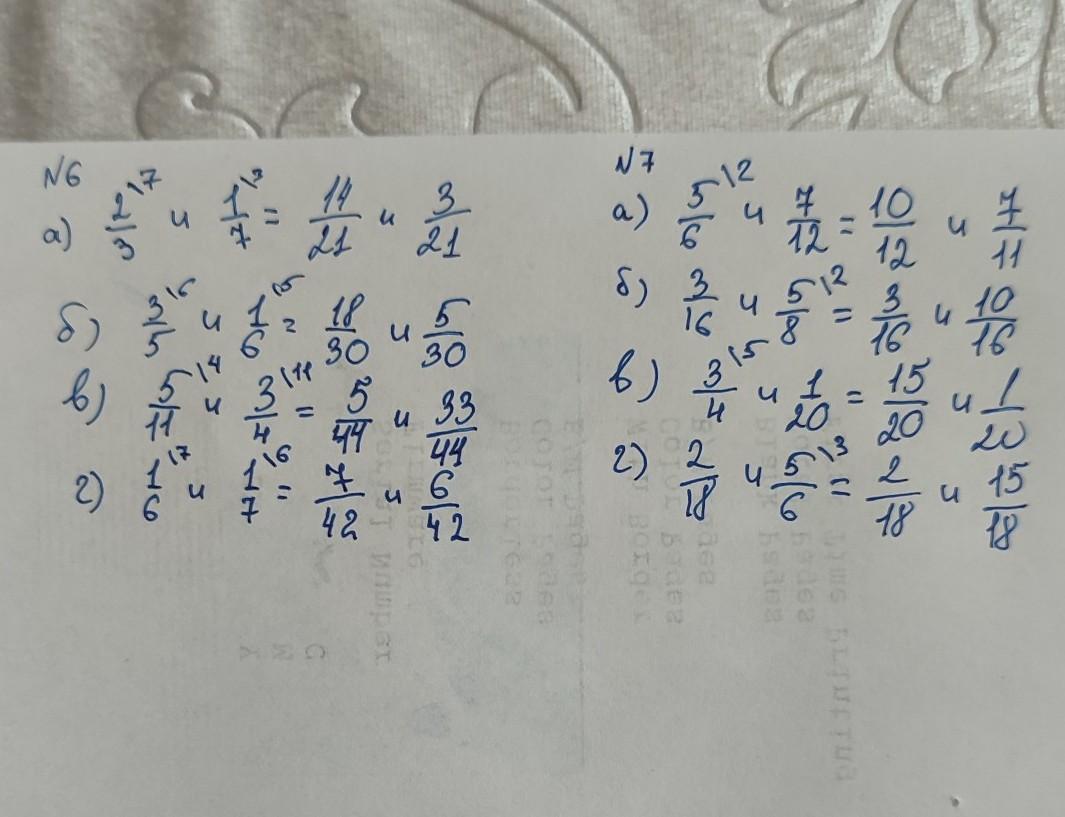 N6
а) 2/3 \7 и 1/7 \3 = 14/21 и 3/21
б) 3/5 \6 и 1/6 \5 = 18/30 и 5/30
в) 5/11 \4 и 3/4 \11 = 5/44 и 33/44
г) 1/6 \7 и 1/7 \6 = 7/42 и 6/42
N7
а) 5/6 \2 и 7/12 = 10/12 и 7/11
б) 3/16 и 5/8 \2 = 3/16 и 10/16
в) 3/4 \5 и 1/20 = 15/20 и 1/20
г) 2/18 и 5/6 \3 = 2/18 и 15/18